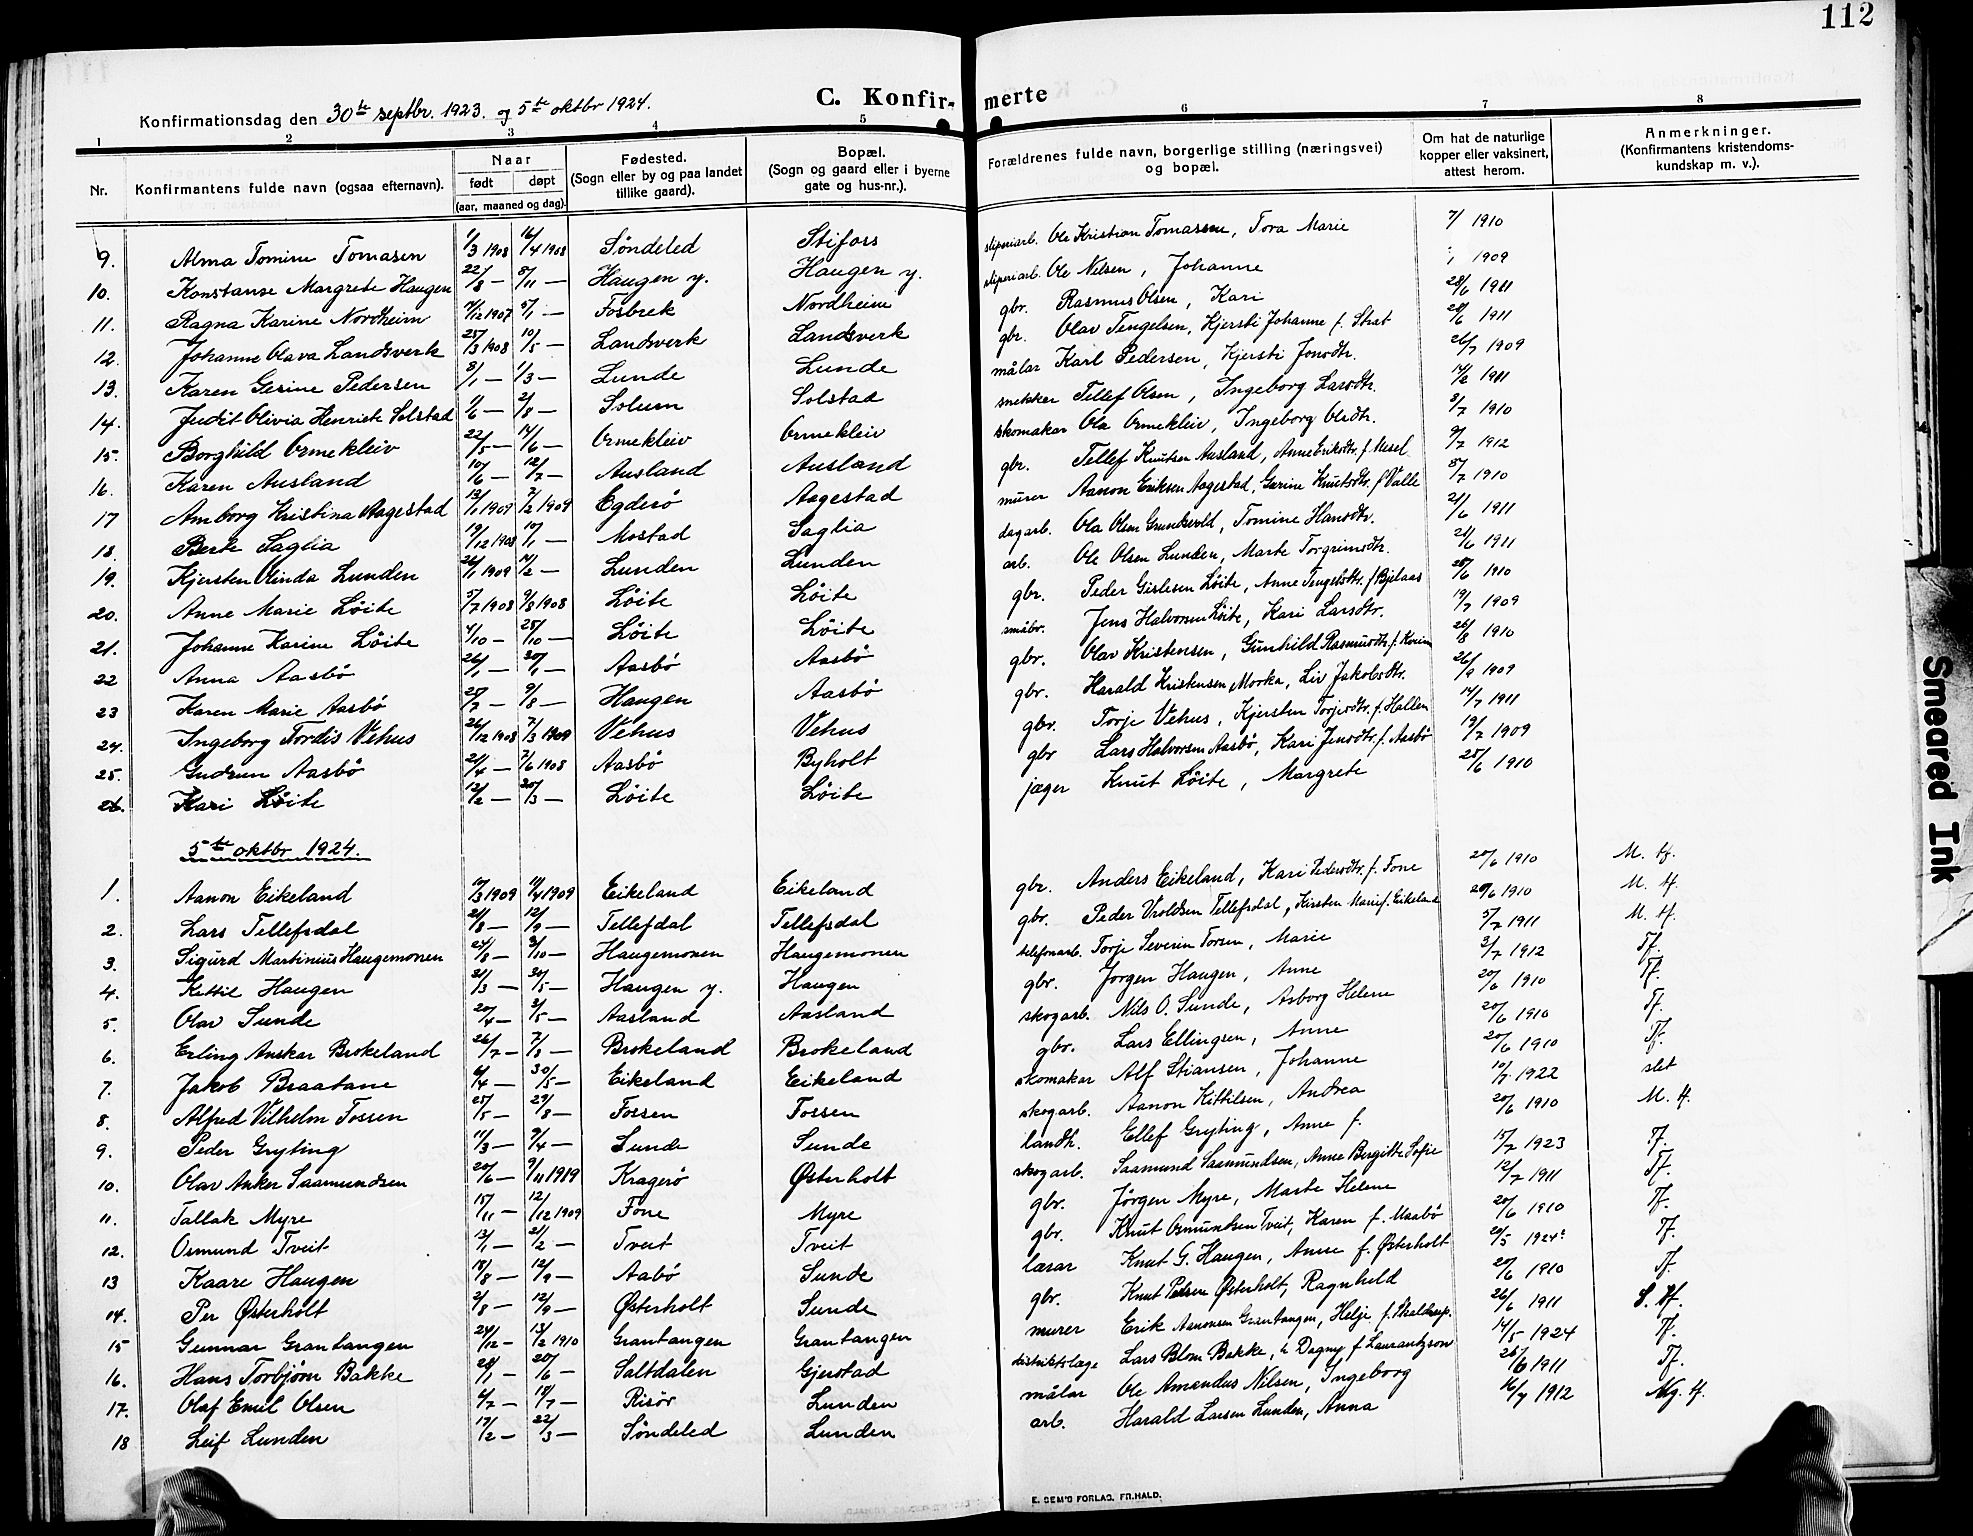 112
C. Konfirmerte
Konfirmationsdag den 30te septbr. 1923. og 5te oktbr 1924.
1 2 3 4 5 6 7 8
Nr. Konfirmantens fulde navn (ogsaa efternavn). Naar født døpt (aar, maaned og dag). Fødested. (Sogn eller by og paa landet tillike gaard). Bopæl. (Sogn og gaard eller i byerne gate og hus-nr.). Forældrenes fulde navn, borgerlige stilling (næringsvei) og bopæl. Om hat de naturlige kopper eller vaksinert, attest herom. Anmerkninger. (Konfirmantens kristendomskundskap m. v.).
9. Alma Tomine Tomasen 1/3 1908 16/4 1908 Søndeled Stifoss sliperiarb. Ole Kristian Tomassen, Tora Marie 7/ 1910
10. Konstanse Margrete Haugen 22/8 — 8/11 — Haugen y. Haugen y. sliperiarb. Ole Nilsen, Johanne 1909
11. Ragna Karine Nordheim /12 1907 5/1 — Fosbrek Nordheim gbr. Rasmus Olsen, Kari 28/6 1911
12. Johanne Olava Landsverk 25/3 1908 10/5 — Landsverk Landsverk gbr. Olav Tengelsen, Kjersti Johanne f. Strat 28/6 1911
13. Karen Gesine Pedersen 8/1 — 1/3 — Lunde Lunde målar Karl Pedersen, Kjersti Jonsdtr. 26/7 1909
14. Judit Olivia Henriete Solstad 1/6 — 2/8 — Solum Solstad snekker Tellef Olsen, Ingeborg Larsdtr. 14/2 1911
15. Borghild Ormekleiv 22/5 — 14/6 — Ormekleiv Ormekleiv skomakar Ola Ormekleiv, Ingeborg Olsdtr. 3/7 1910
16. Karen Ausland 10/6 — 12/7 — Ausland Ausland gbr. Tellef Knutsen Ausland, Anne Eriksdtr. f. Mesel 9/7 1912
17 Amborg Kristina Aagestad 13/1 1909 7/2 1909 Egderø Aagestad murer Aanon Eriksen Aagestad, Gerine Knutsdtr. f Valle 8/7 1910
18. Berte Saglia 19/12 1908 10/1 — Mostad Saglia dagarb. Ola Olsen Grundsvold, Tomine Hansdtr. 21/6 1911
19. Kjersten Olinda Lunden 26/1 1909 14/2 — Lunden Lunden arb. Ole Olsen Lunden, Marte Torgrimsdtr. 21/6 1911
20. Anne Marie Løite 5/7 1908 9/8 1908 Løite Løite gbr. Peder Gislesen Løite, Anne Tengelsdtr. f Bjelaas 28/6 1910
21. Johanne Karine Løite 4/10 — 25/10 — Løite Løite småbr. Jens Halvorsen Løite, Kari Larsdtr. 19/7 1909
22 Anna Aasbø 26/1 — 30/1 — Aasbø Aasbø gbr. Olav Kristensen, Gunhild Rasmusdtr. f. 26/8 1910
23 Karen Marie Aasbø 25/7 — 9/8 — Haugen Aasbø gbr. Harald Kristensen Morka, Liv Jakobsdtr. 26/9 1909
24. Ingeborg Tordis Vehus 26/12 1908 7/3 1909 Vehus Vehus gbr. Torje Vehus, Kjersten Torjesdtr. f. Hallen 14/7 1911
25. Gudrun Aasbø 21/4 — 7/6 1908 Aasbø Byholt gbr Lars Halvorsen Aasbø, Kari Jensdtr. f. Aasbø 19/7 1909
26. Kari Løite 12/2 — 20/3 — Løite Løite jæger Knut Løite, Margrete 25/6 1910
5te oktbr 1924.
1. Aanon Eikeland 10/3 1909 11/4 1909 Eikeland Eikeland gbr. Anders Eikeland, Kari Pedersdtr. f. Fone 20/6 1910 M. tf.
2. Lars Tellefsdal 21/8 — 12/9 — Tellefsdal Tellefsdal gbr. Peder Vroldsen Tellefsdal, Kirsten Marie f. Eikeland 20/6 1910 M. tf.
3. Sigurd Martinius Haugemonen 24/8 — 3/10 — Haugemonen Haugemonen telefonarb. Torje Severin Torsen, Marie 5/7 1911 M. tf.
4. Kittil Haugen 21/3 — 30/5 — Haugen y. Haugen gbr. Jørgen Haugen, Anne 3/7 1912 Tf.
5. Olav Sunde 20/4 — 31/5 — Aasland Aasland skogarb. Nils O. Sunde, Asborg Helene 20/6 1910 Tf.
6. Erling Anskar Brokeland 26/7 — 7/8 — Brokeland Brokeland gbr. Lars Ellingsen, Anne 20/6 1910 Tf.
7. Jakob Braatane 6/4 — 30/5 — Eikeland Eikeland skomakar Alf Stiansen, Johanne 20/6 1910 Tf.
8. Alfred Vilhelm Fossen 25/5 — 29/8 — Fossen Fossen skogarb. Aanon Kittilsen, Andrea 10/7 1922 slet
9. Peder Gryting 11/3 — 9/4 — Sunde Sunde landh. Ellef Gryting, Anne f. 20/6 1910 M. tf.
10. Olav Anker Saamundsen 20/6 — 9/11 1919 Kragerø Østerholt skogarb. Saamund Saamundsen, Anne Bergitte Sofie 15/7 1923 Tf.
11. Tallak Myre 15/11 — 12/12 1909 Fone Myre gbr. Jørgen Myre, Marte Helene 12/7 1911 Tf.
12. Osmund Tveit 13/1 — 21/2 — Tveit Tveit gbr. Knut Osmundsen Tveit, Karen f. Maabø 20/6 1910 Tf.
13 Kaare Haugen 18/8 — 12/9 — Aabø Sunde lærar Knut G. Haugen, Anne f. Østerholt 20/5 1924 Tf.
14. Per Østerholt 2/8 — 12/9 — Østerholt Sunde gbr. Knut Petersen Østerholt, Ragnhild 20/6 1910 Tf.
15 Gunnar Grantangen 24/12 — 13/2 1910 Grantangen Grantangen murer Erik Aanonsen Grantangen, Helje f. 26/6 1911 S. tf.
16. Hans Torbjørn Bakke 28/1 — 20/6 — Saltdalen Gjerstad distriktslæge Lars Blom Bakke, & Dagny f Laurantzson 14/5 1924 Tf.
17. Olaf Emil Olsen 4/7 — 18/7 — Risør Lunden målar Ole Amandus Nilsen, Ingeborg 26/6 1911 Tf.
18 Leif Lunden 17/2 — 22/3 — Søndeled Lunden arb. Harald Larsen Lunden, Anna 16/7 1912 Mg. tf.
E. SEM'S FORLAG, FR.HALD.
Smeared Ink